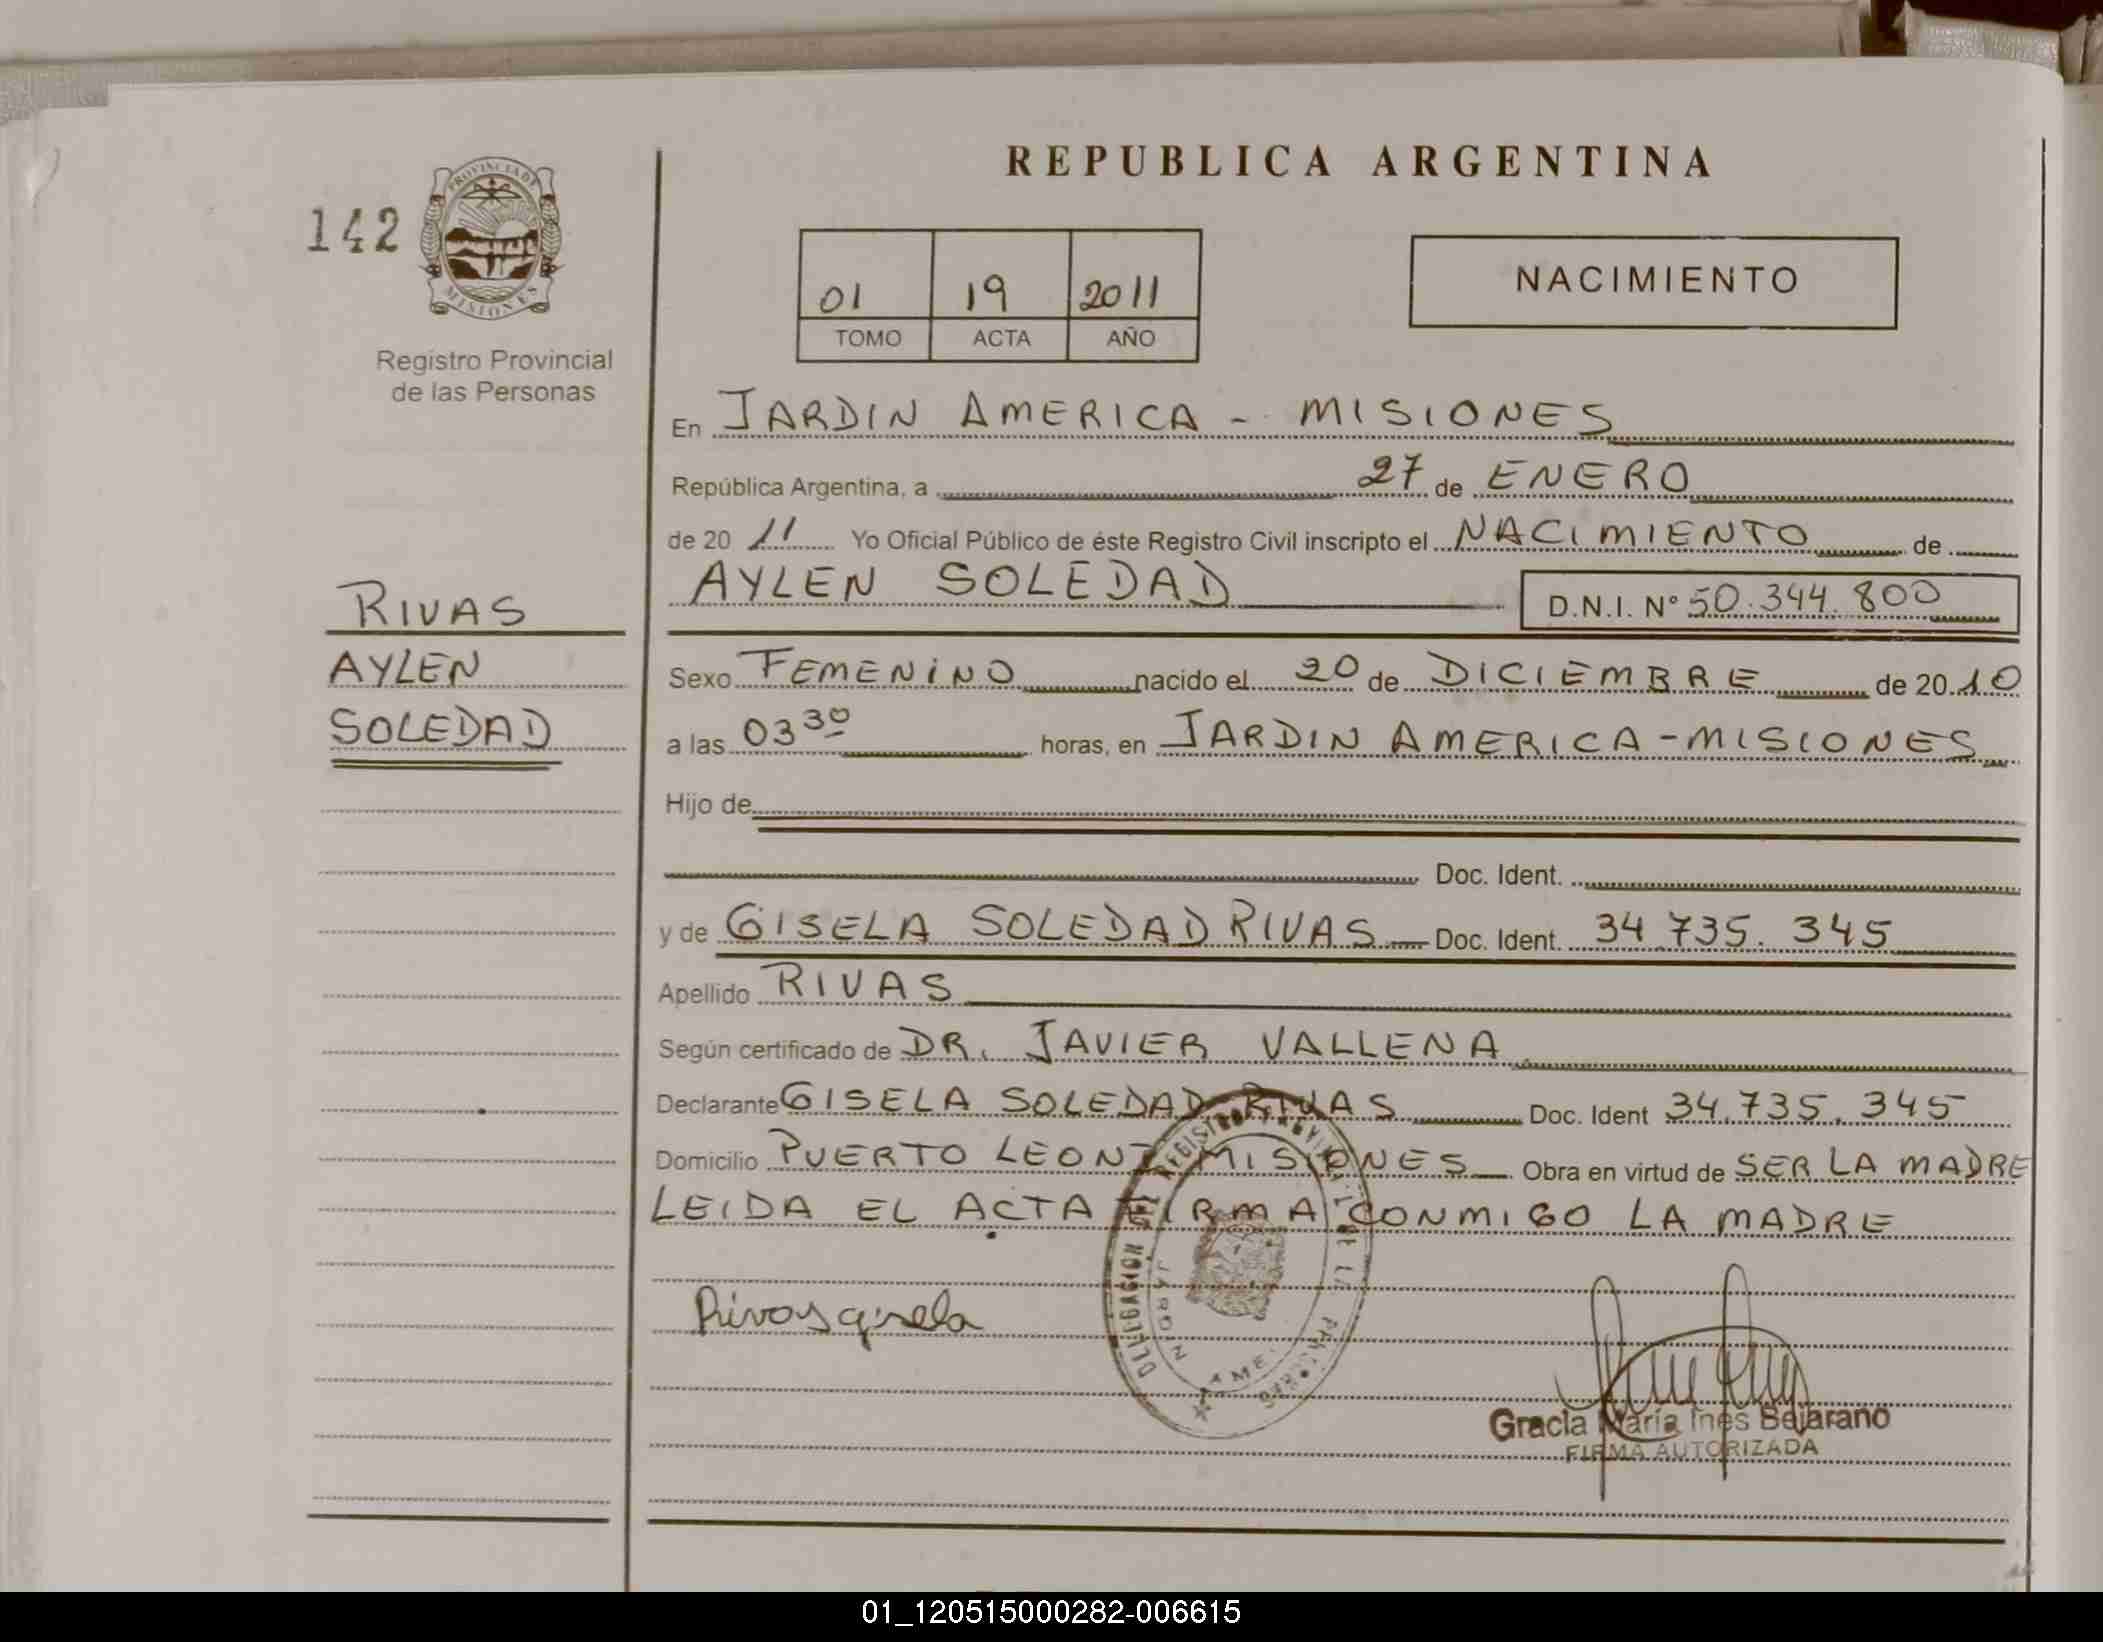 REPUBLICA ARGENTINA
142
PROVINCIA DE
MISIONES
Registro Provincial
de las Personas
01 19 2011
TOMO ACTA AÑO
NACIMIENTO
En JARDIN AMERICA - MISIONES
República Argentina, a 27 de ENERO
de 20 11 Yo Oficial Público de éste Registro Civil inscripto el NACIMIENTO de
AYLEN SOLEDAD D.N.I. N° 50.344.800
RIVAS
AYLEN
SOLEDAD
Sexo FEMENINO nacido el 20 de DICIEMBRE de 20 10
a las 03 30 horas, en JARDIN AMERICA - MISIONES
Hijo de
Doc. Ident.
y de GISELA SOLEDAD RIVAS Doc. Ident. 34.735.345
Apellido RIVAS
Según certificado de DR. JAVIER VALLENA
Declarante GISELA SOLEDAD RIVAS Doc. Ident 34.735.345
Domicilio PUERTO LEONI MISIONES Obra en virtud de SER LA MADRE
LEIDA EL ACTA FIRMA CONMIGO LA MADRE
Rivas gisela
DELEGACION DEL REGISTRO DE LA
JARDIN AME
Gracia María Inés Bejarano
FIRMA AUTORIZADA
01_120515000282-006615